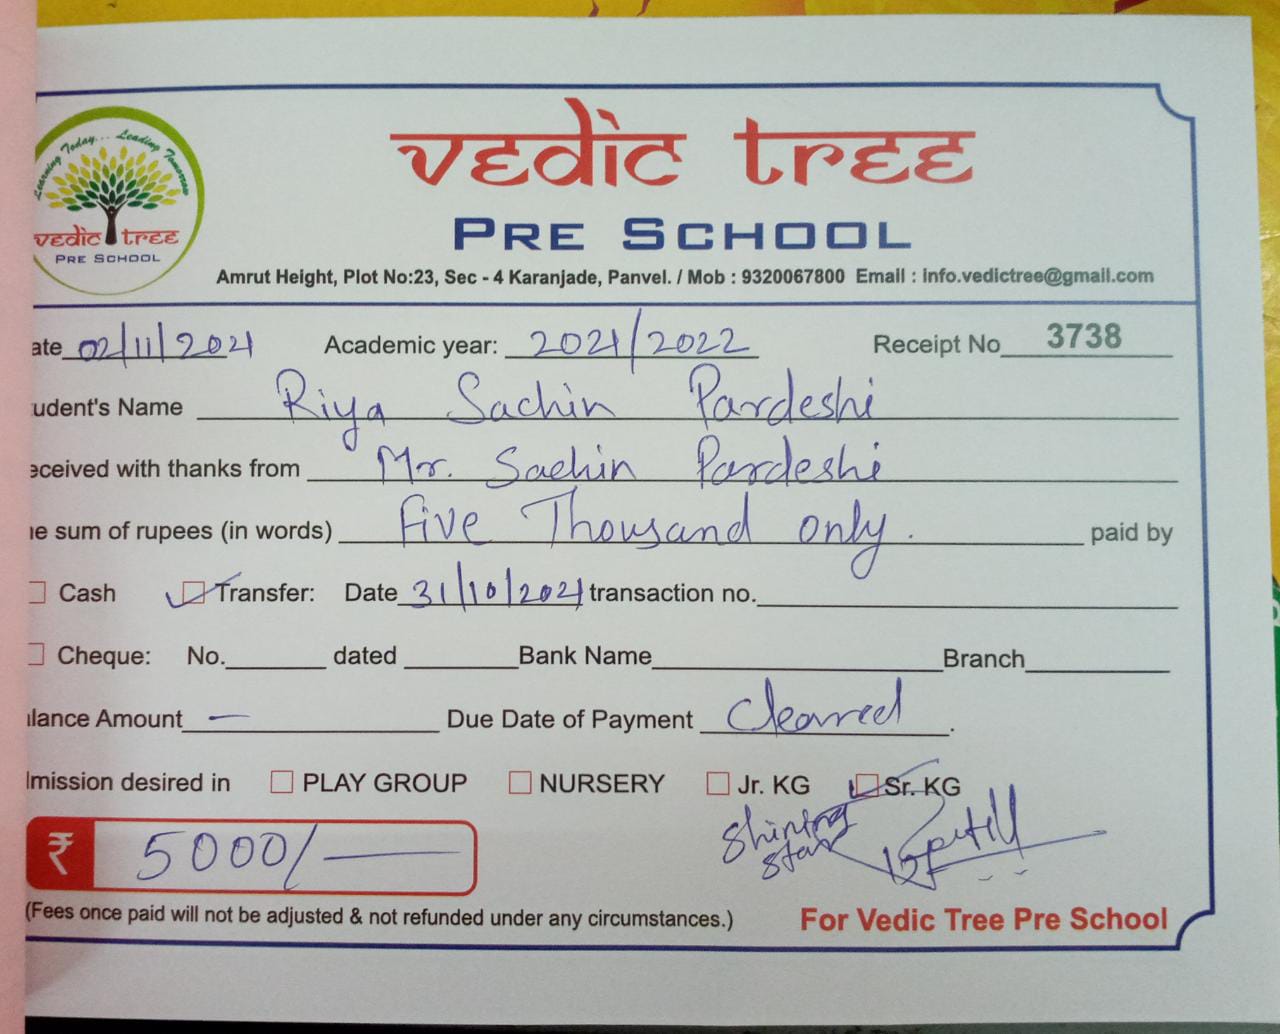 Learning Today... Leading Tomorrow
vedic tree
PRE SCHOOL
vedic tree
PRE SCHOOL
Amrut Height, Plot No:23, Sec - 4 Karanjade, Panvel. / Mob : 9320067800 Email : info.vedictree@gmail.com
ate 02/11/2021 Academic year: 2021/2022 Receipt No 3738
udent's Name Riya Sachin Pardeshi
eceived with thanks from Mr. Sachin Pardeshi
e sum of rupees (in words) Five Thousand only. paid by
Cash Transfer: Date 31/10/2021 transaction no.
Cheque: No. dated Bank Name Branch
lance Amount — Due Date of Payment Cleared.
mission desired in PLAY GROUP NURSERY Jr. KG Sr. KG
Shining
Star
₹ 5000/—
(Fees once paid will not be adjusted & not refunded under any circumstances.) For Vedic Tree Pre School